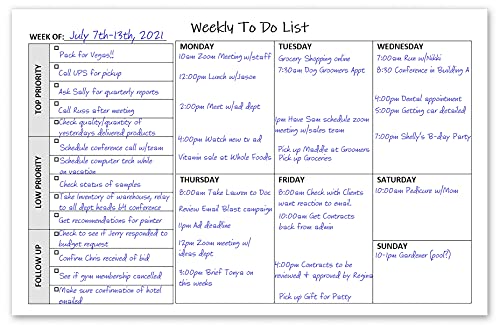 Weekly To Do List
WEEK OF: July 7th-13th, 2021
TOP PRIORITY
Pack for Vegas!!
Call UPS for pickup
Ask Sally for quarterly reports
Call Russ after meeting
Check quality/quantity of
yesterdays delivered products
LOW PRIORITY
Schedule conference call w/team
Schedule computer tech while
on vacation
Check status of samples
Take inventory of warehouse, relay
to all dept heads b4 conference
Get recommendations for painter
FOLLOW UP
Check to see if Jerry responded to
budget request
Confirm Chris received of bid
See if gym membership cancelled
Make sure confirmation of hotel
emailed
MONDAY
10am Zoom Meeting w/staff
12:00pm Lunch w/Jason
2:00pm Meet w/ad dept
4:00pm Watch new tv ad
Vitamin sale at Whole Foods
TUESDAY
Grocery Shopping online
7:30am Dog Groomers Appt
1pm Have Sam schedule zoom
meeting w/sales team
Pick up Maddie at Groomers
Pick up Groceries
WEDNESDAY
7:00am Run w/Nikki
8:30 Conference in Building A
4:00pm Dental appointment
5:00pm Getting car detailed
7:00pm Shelly's B-day Party
THURSDAY
8:00am Take Lauren to Doc
Review Email Blast campaign
11pm Ad deadline
12pm Zoom meeting w/
ideas dept
3:00pm Brief Tonya on
this weeks
FRIDAY
8:00am Check with Clients
want reaction to email.
10:00am Get Contracts
back from admin
4:00pm Contracts to be
reviewed & approved by Regina
Pick up Gift for Patty
SATURDAY
10:00am Pedicure w/Mom
SUNDAY
10-1pm Gardener (pool?!)